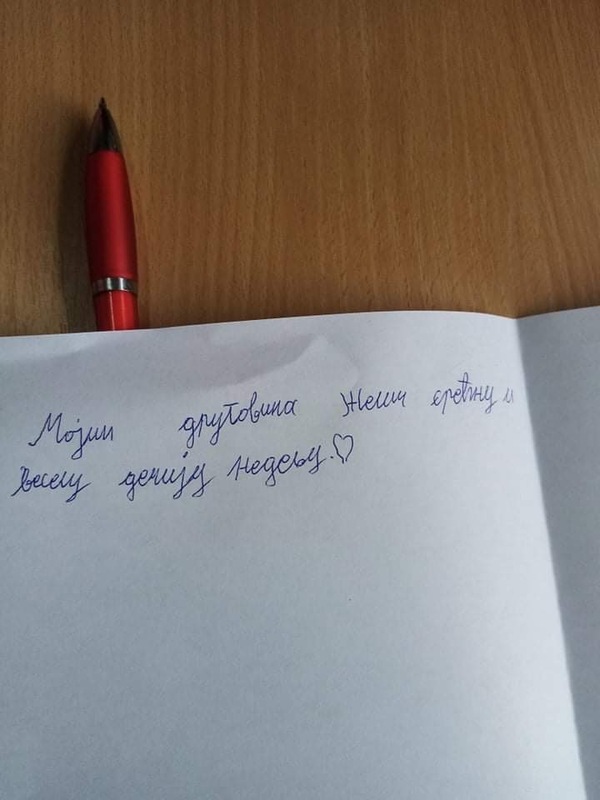 Мојим друговима желим срећну и
веселу дечију недељу.♡